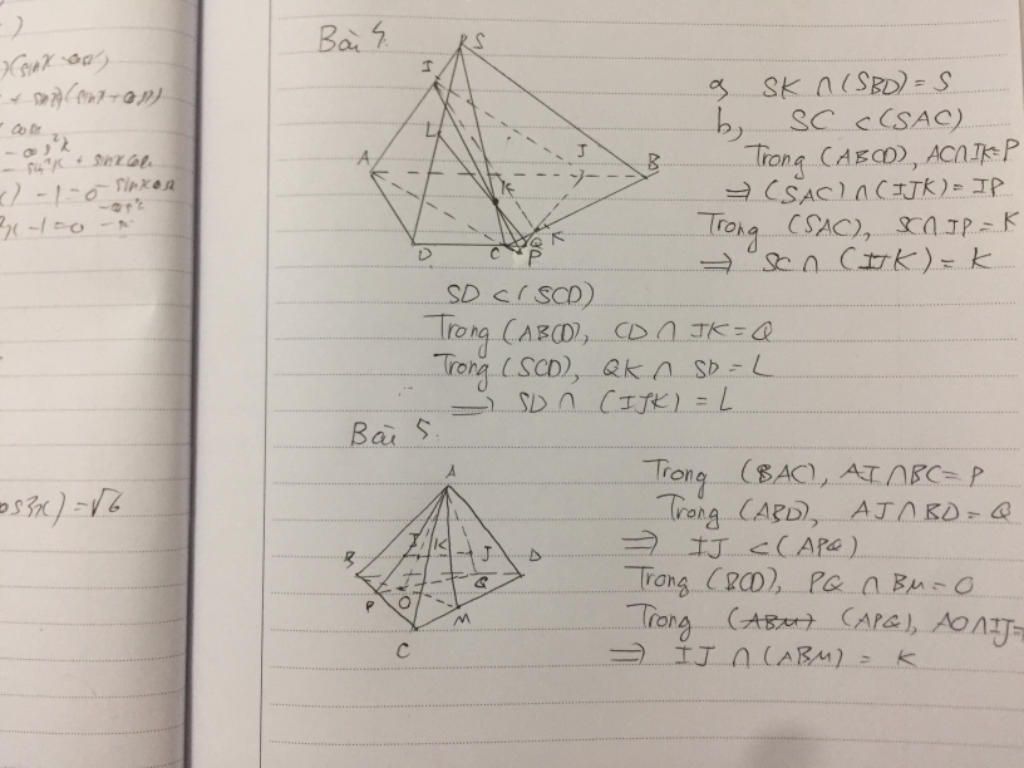 )
)(sinx-cosx)
cosx
-sin²x + sinxcosx
) -1=0
x -1=0
os3x)=√6
Bài 4.
S
I
L
A
J
B
K
K
D
C
Q
P
a, SK ∩(SBD)=S
b, SC ⊂(SAC)
Trong (ABCD), AC∩JK=P
⇒ (SAC)∩(IJK)=IP
Trong (SAC), SC∩IP=K
⇒ SC∩ (IJK)= K
SD ⊂(SCD)
Trong (ABCD), CD ∩ JK=Q
Trong (SCD), QK ∩ SD=L
⇒ SD ∩ (IJK) = L
Bài 5.
A
I
K
J
B
D
P
O
Q
M
C
Trong (BAC), AI∩BC=P
Trong (ABD), AJ∩BD=Q
⇒ IJ ⊂(APQ)
Trong (BCD), PQ ∩ BM=O
Trong (ABM) (APQ), AO∩IJ=
⇒ IJ ∩(ABM) = K